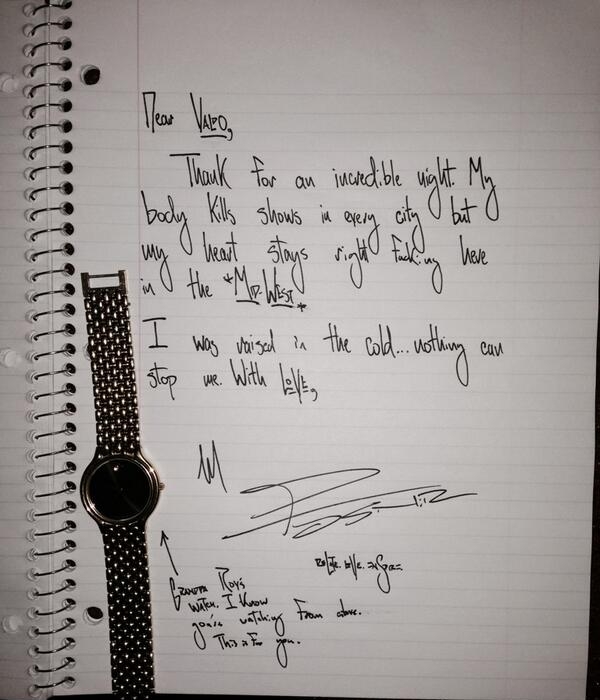 Dear VALPO,
Thank for an incredible night. My
body kills shows in every city but
my heart stays right fucking here
in the *MID-WEST*
I was raised in the cold... nothing can
stop me. With LOVE,
Grandpa Roy's
watch. I know
you're watching from above.
This is for you.